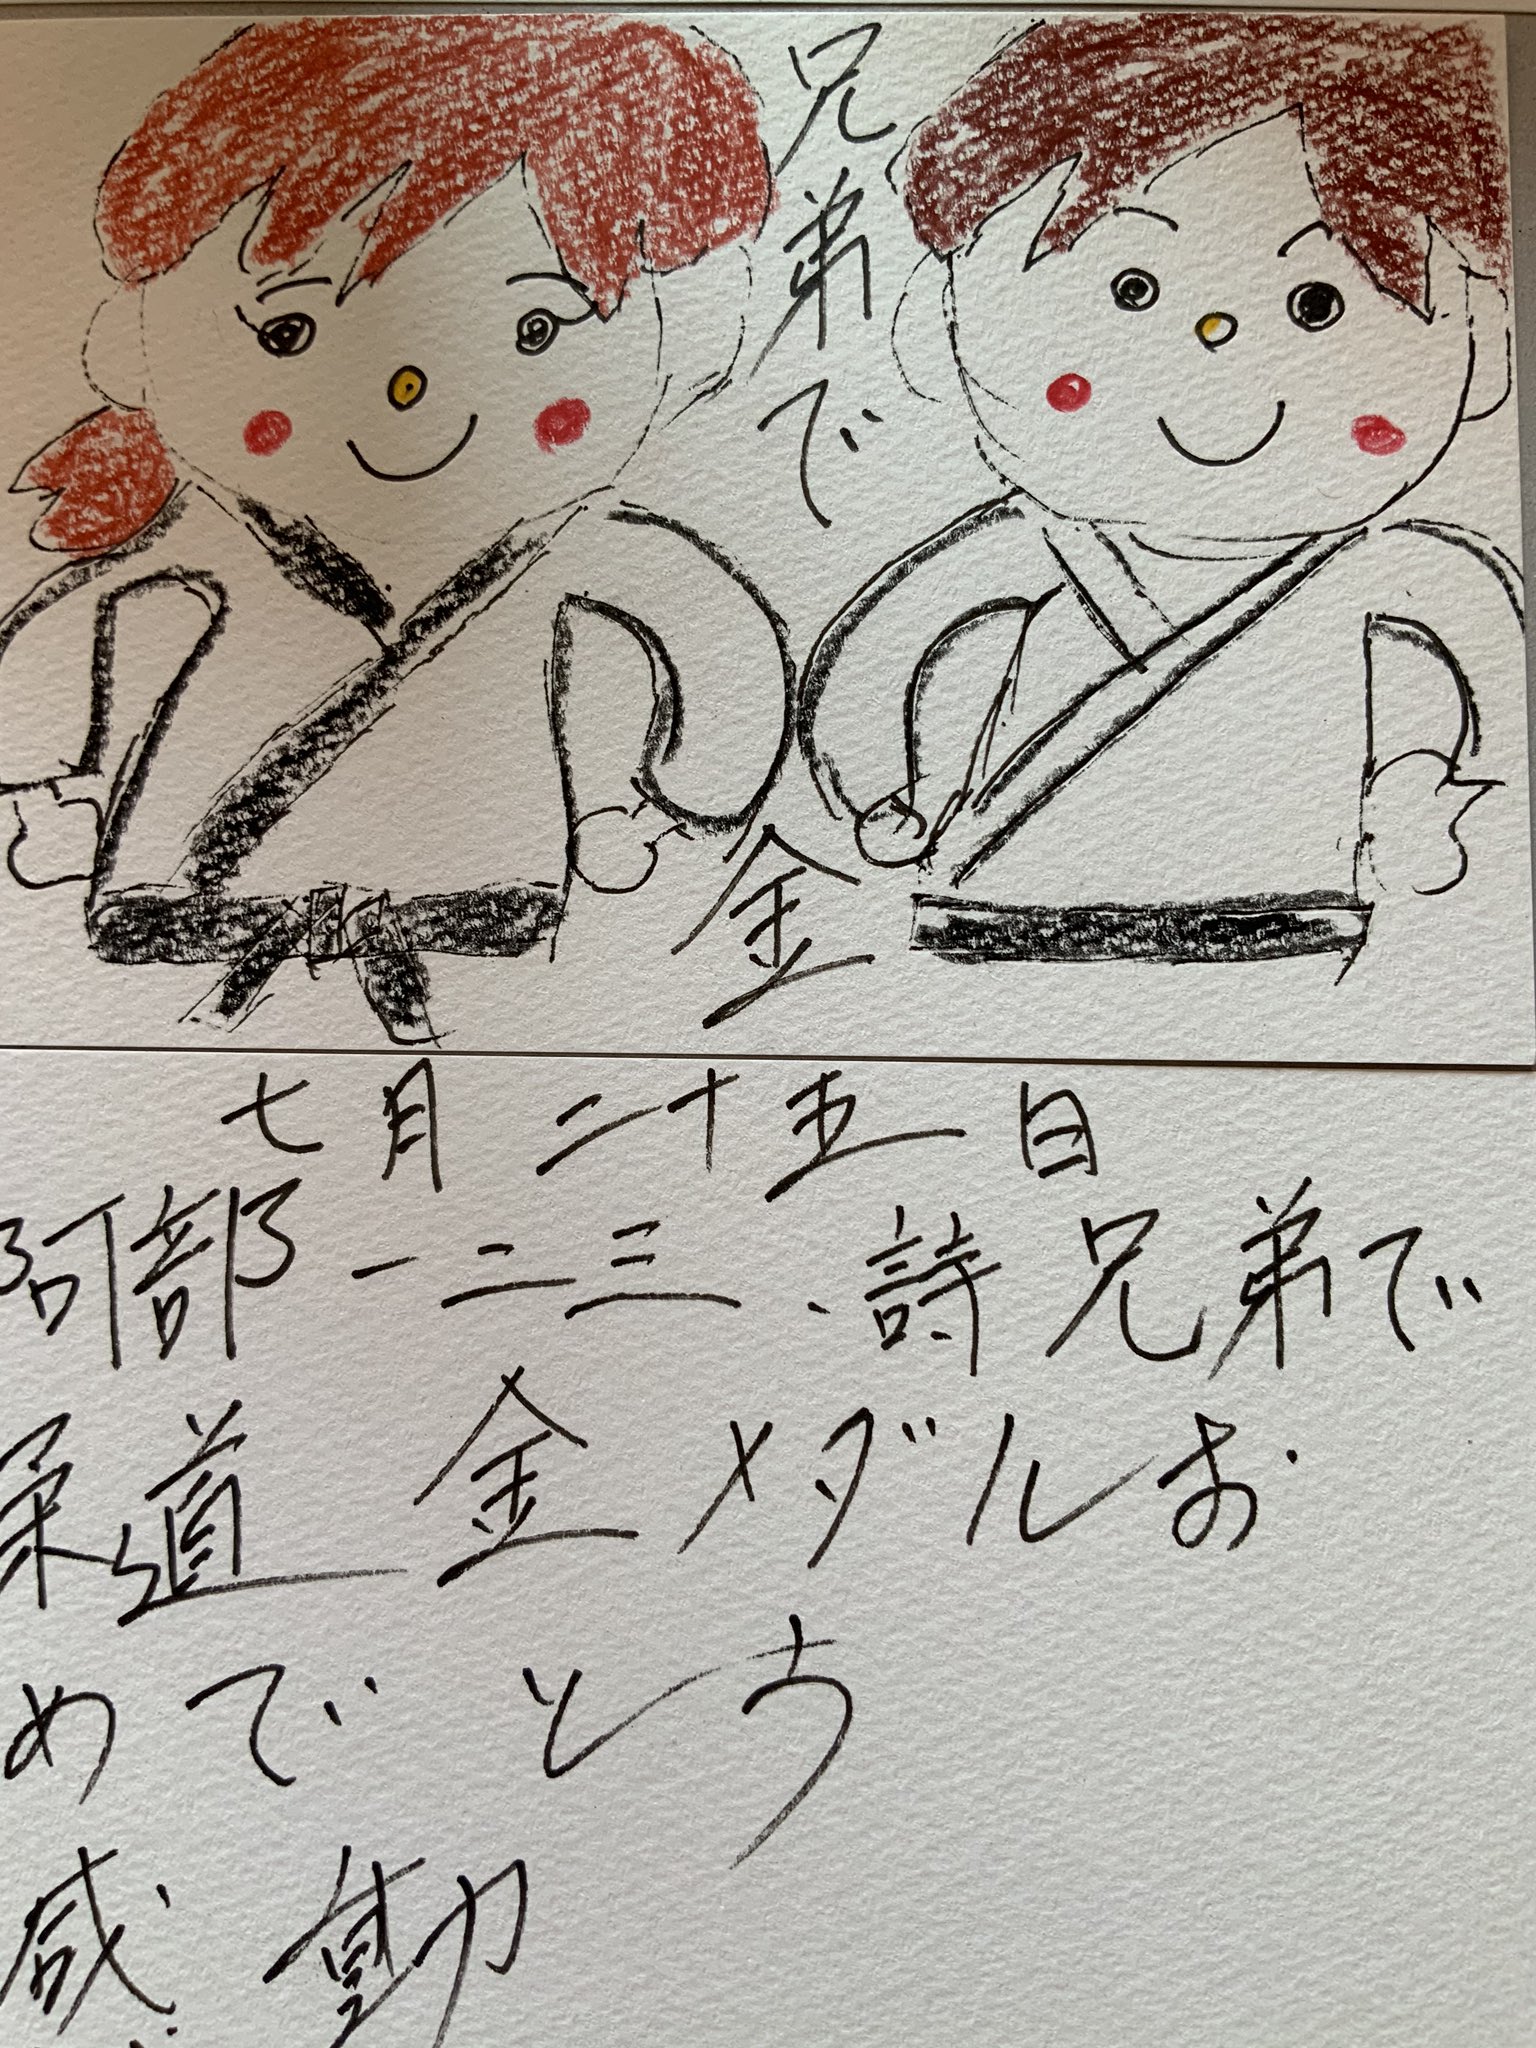 兄弟で
金
七月二十五日
阿部一二三、詩兄弟で
柔道 金メダルお
めでとう
感動